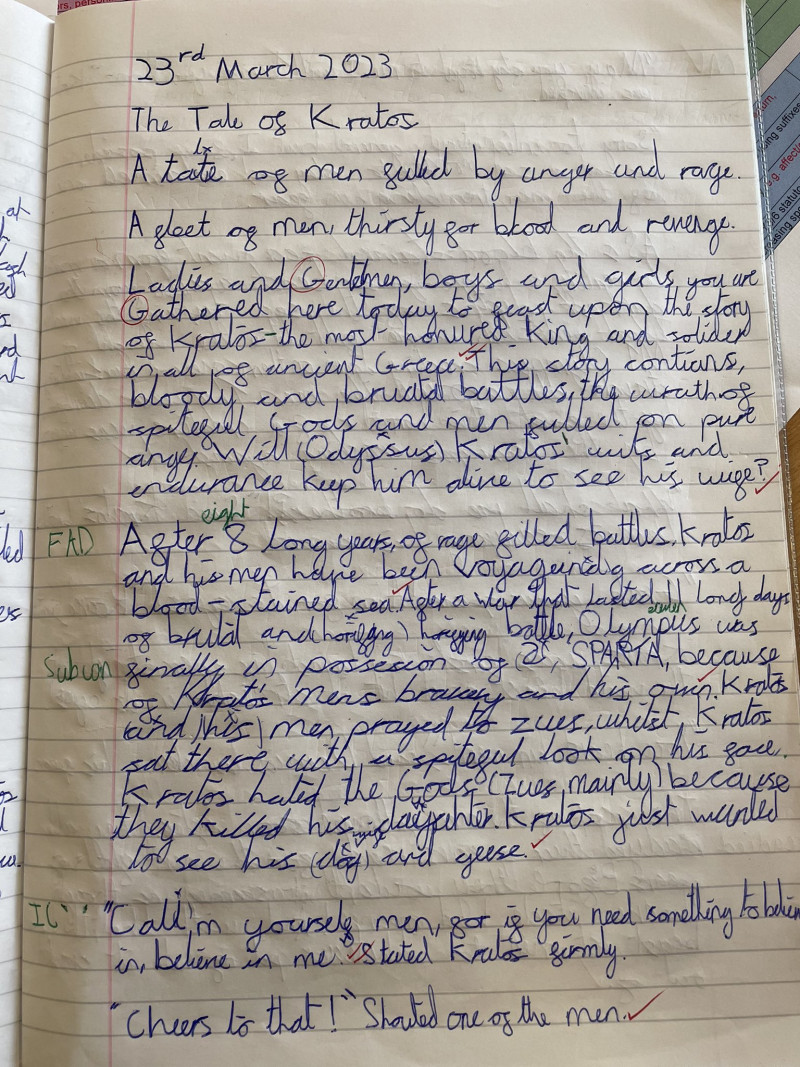 23rd March 2023
The Tale of Kratos
A tale of men fulled by anger and rage.
A fleet of men, thirsty for blood and revenge.
Ladies and Gentelmen, boys and girls, you are
Gathered here today to feast upon the story
of Kratos-the most honured King and solider
in all of ancient Greece. This story contians,
bloody and brutal battles, the wrath of
spiteful Gods and men fulled on pure
angy. Will (Odyssus) Kratos' wits and
endurance keep him alive to see his wife?
eight
FAD After 8 long years, of rage filled battles, Kratos
and his men have been voyageing across a
blood-stained sea. After a war that lasted 11 long days
of brutal and horifying battle, Olympus was
Subcon finally in possesion of SPARTA, because
of Kratos mens bravery and his own. Kratos
and (his) men prayed to zues, whilst Kratos
sat there with a spiteful look on his face.
Kratos hated the Gods (Zues mainly) because
they killed his daughter. Kratos just wanted
wife
to see his (dog) and geese.
IC "Calm yourself men, for if you need something to believe
in, believe in me." Stated Kratos firmly.
"Cheers to that!" Shouted one of the men.